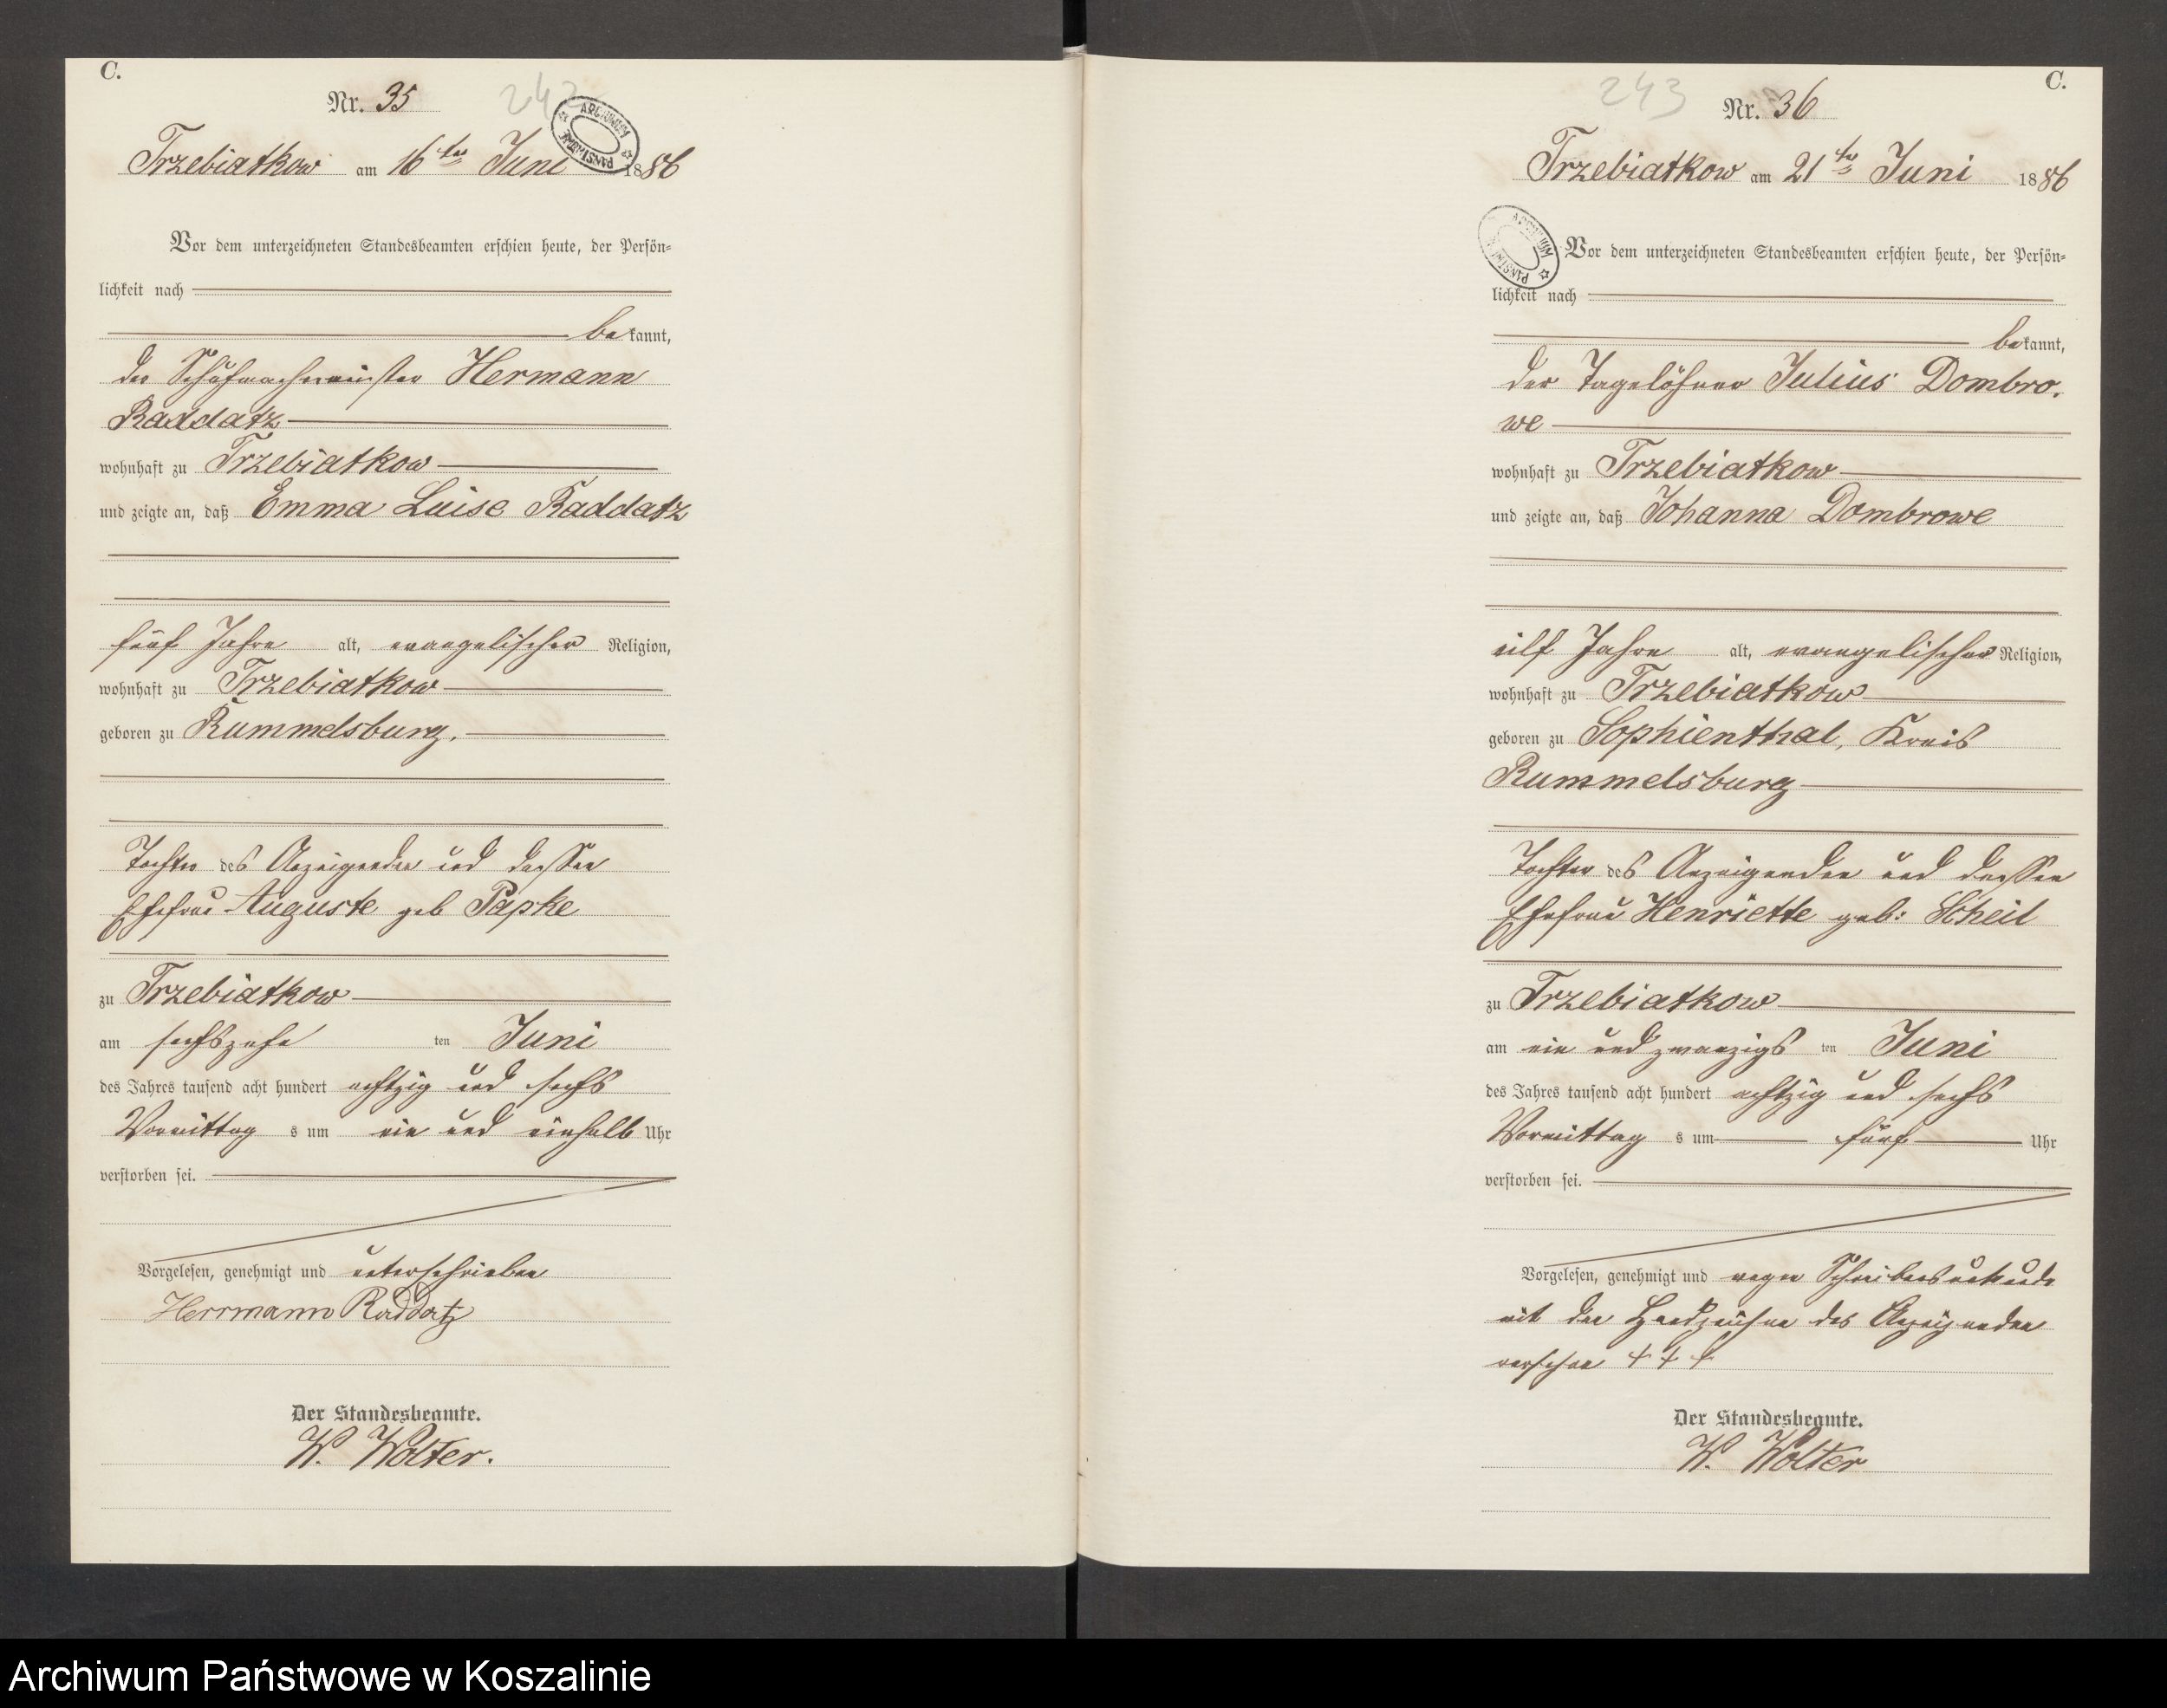 C.
242
Nr. 35
ARCHIWUM PAŃSTWOWE
Trzebiatkow am 16ten Juni 1886
Vor dem unterzeichneten Standesbeamten erschien heute, der Persön-
lichkeit nach
bekannt,
der Schuhmachermeister Hermann
Raddatz
wohnhaft zu Trzebiatkow
und zeigte an, daß Emma Luise Raddatz
fünf Jahre alt, evangelischer Religion,
wohnhaft zu Trzebiatkow
geboren zu Rummelsburg.
Tochter des Anzeigenden und dessen
Ehefrau Auguste geb Papke
zu Trzebiatkow
am sechszehn ten Juni
des Jahres tausend acht hundert achtzig und sechs
Vormittag s um ein und einhalb Uhr
verstorben sei.
Vorgelesen, genehmigt und unterschrieben
Herrmann Raddatz
Der Standesbeamte.
W. Wolter.
C.
243
Nr. 36
Trzebiatkow am 21ten Juni 1886
ARCHIWUM PAŃSTWOWE
Vor dem unterzeichneten Standesbeamten erschien heute, der Persön-
lichkeit nach
bekannt,
der Tagelöhner Julius Dombro-
we
wohnhaft zu Trzebiatkow
und zeigte an, daß Johanna Dombrowe
eilf Jahre alt, evangelischer Religion,
wohnhaft zu Trzebiatkow
geboren zu Sophienthal, Kreis
Rummelsburg
Tochter des Anzeigenden und dessen
Ehefrau Henriette geb: Scheil
zu Trzebiatkow
am ein und zwanzigs ten Juni
des Jahres tausend acht hundert achtzig und sechs
Vormittag s um fünf Uhr
verstorben sei.
Vorgelesen, genehmigt und wegen Schreibensunkunde
mit den Handzeichen des Anzeigenden
versehen + + +
Der Standesbeamte.
W. Wolter
Archiwum Państwowe w Koszalinie